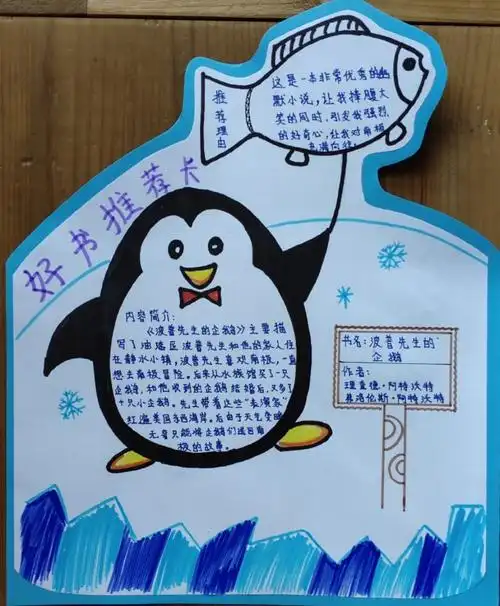 好书推荐卡
推荐理由
这是一本非常优秀的幽
默小说，让我捧腹大
笑的同时，引发我强烈
的好奇心，让我对南极
充满向往。
内容简介：
《波普先生的企鹅》主要描
写了油漆匠波普先生和他的家人住
在静水小镇，波普先生喜欢南极，一直
想去南极冒险。后来从水族馆买了一只
企鹅，和他收到的企鹅结婚后，又多了
十只小企鹅。先生带着这些"表演家"
红遍美国东西海岸。后由于天气变暖
无奈只能将企鹅们送回南
极的故事。
书名：波普先生的
企鹅
作者：
理查德·阿特沃特
弗洛伦斯·阿特沃特